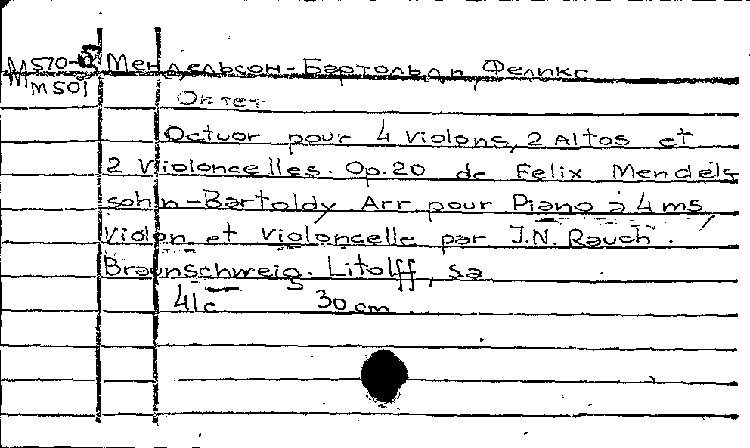 М570-а Мендельсон-Бартольди, Феликс
М501
Октет
Octuor pour 4 Violons, 2 Altos et
2 Violoncelles. Op.20 de Felix Mendels
sohn-Bartoldy Arr pour Piano à 4 ms,
Violon et violoncelle par J.N. Rauch.
Braunschweig. Litolff, sa
41c 30 cm